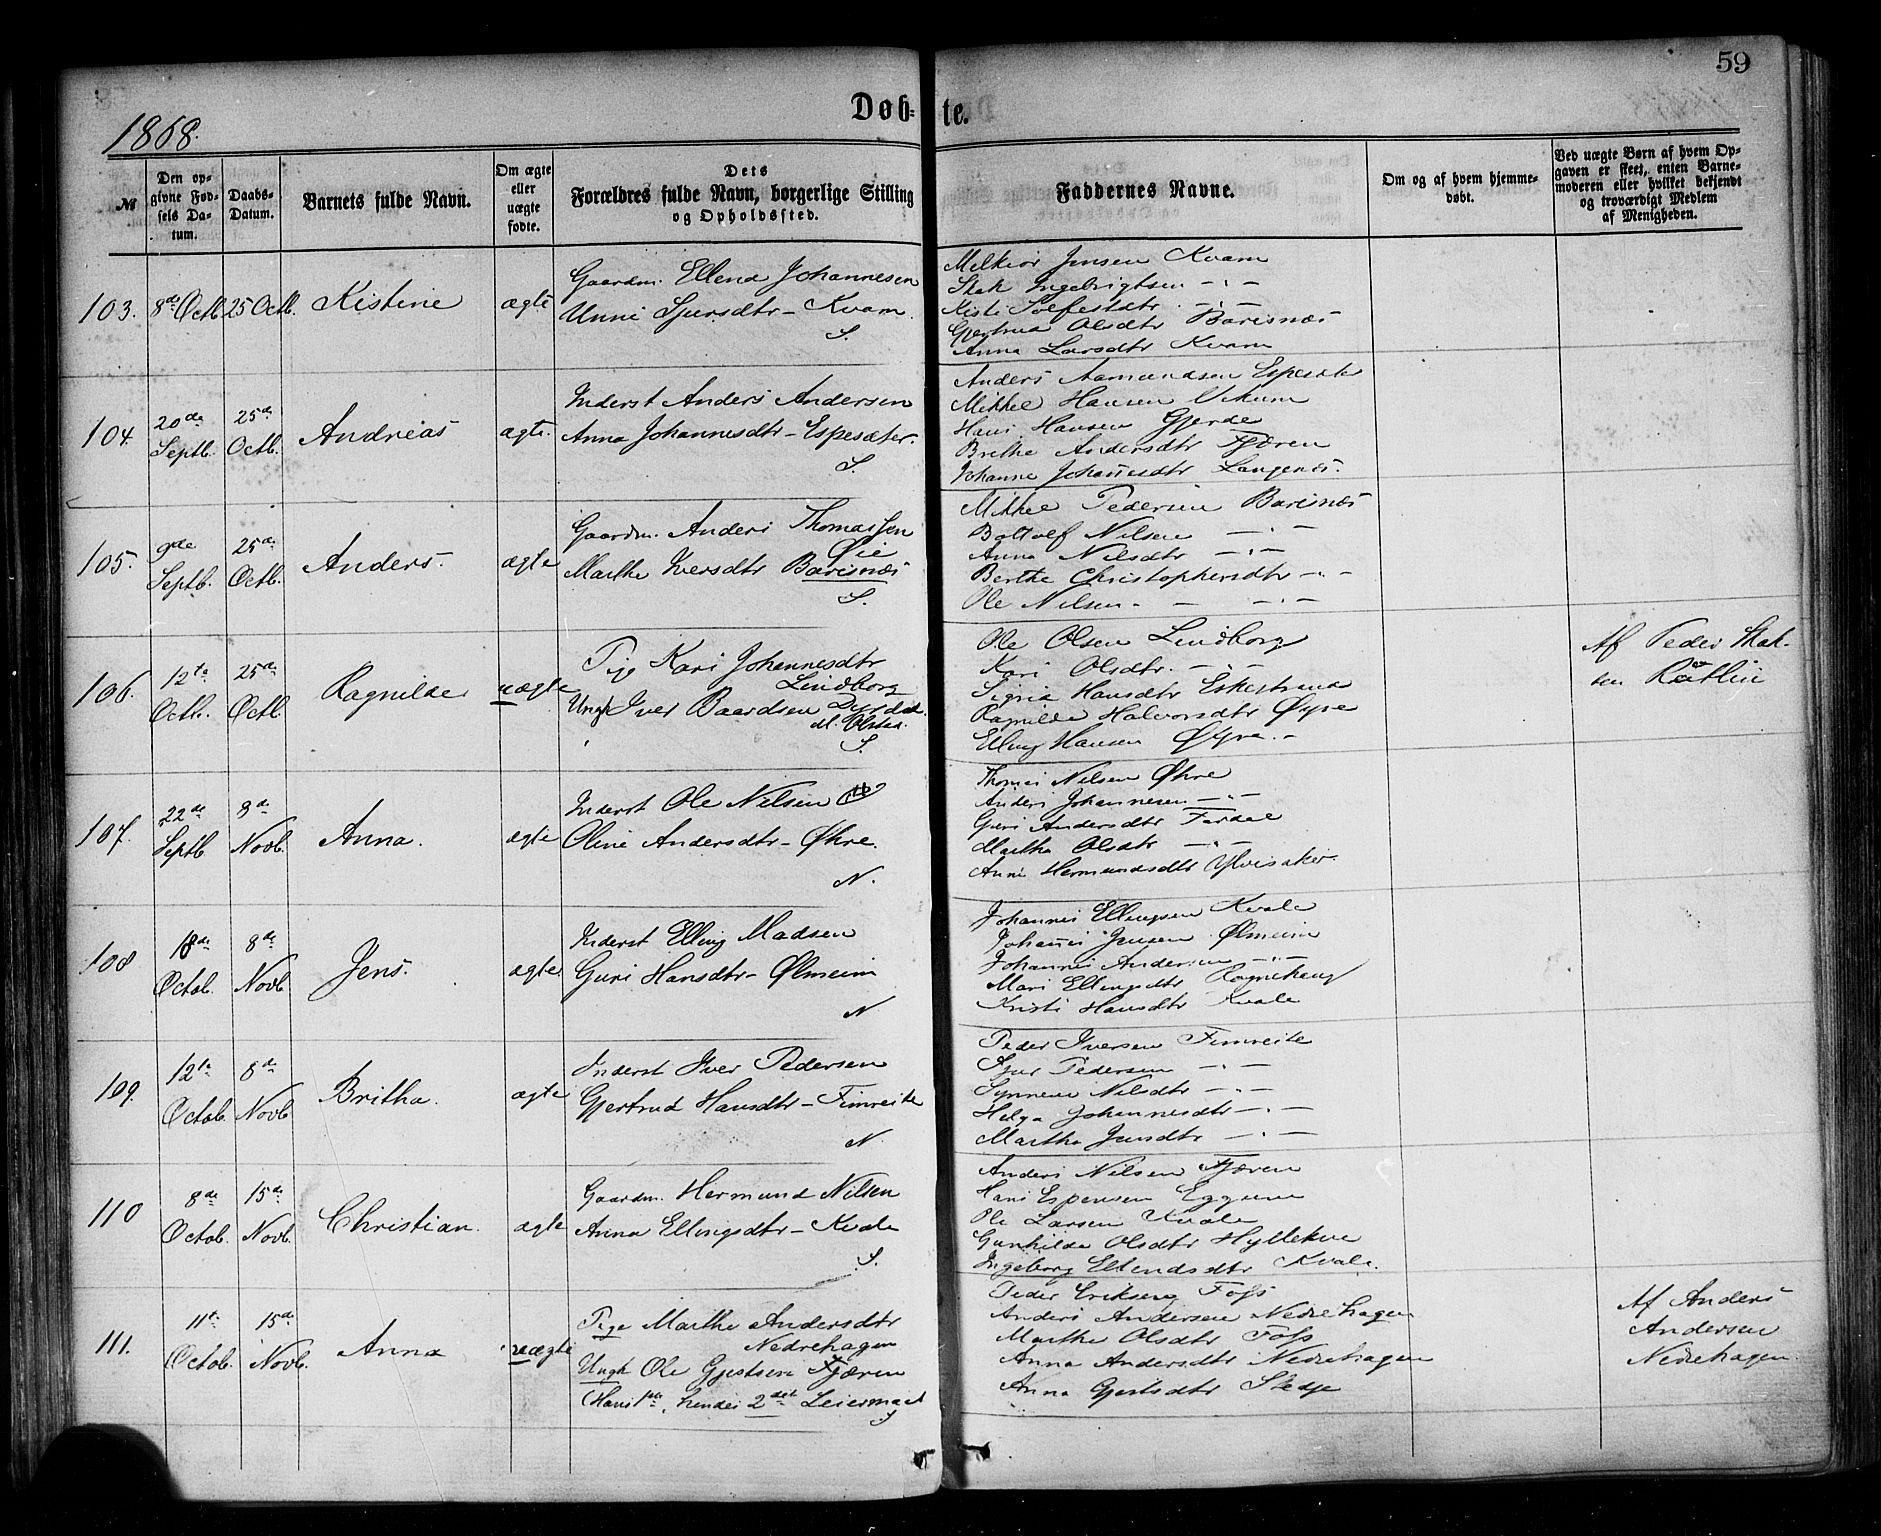 59
1868.
Døb-te.
№
Den opgivne Fødsels Datum.
Daabs-Datum.
Barnets fulde Navn.
Om ægte eller uægte fødte.
Dets Forældres fulde Navn, borgerlige Stilling og Opholdssted.
Faddernes Navne.
Om og af hvem hjemmedøbt.
Ved uægte Børn af hvem Opgaven er skeet, enten Barnemoderen eller hvilket bekjendt og troværdigt Medlem af Menigheden.
103. 8de Octb. 25 Octb. Kistine ægte
Gaardm. Ellend Johannesen
Unni Sjursdtr – Kvam.
S.
Melkior Jensen Kvam
Stak Ingebrigtsen –"–
Kisti Solfestdtr. –"–
Gjertrud Olsdtr Barisnæs
Anna Larsdtr Kvam
104. 20de Septb. 25de Octb. Andreas ægte.
Inderst Anders Andersen
Anna Johannesdtr – Espesæter.
S.
Anders Aamundsen Espesæter
Mikkel Hansen Vikum
Hans Hansen Gjerde
Brithe Andersdtr Fjæren
Johanne Johannesdtr Langenæs.
105. 9de Septb. 25de Octb. Anders. ægte
Gaardm. Anders Thomassen
Øie
Marthe Iversdtr Barisnæs
S.
Mikkel Pedersen Barisnæs
Bottolf Nilsen –"–
Anna Nilsdtr –"–
Berthe Christophersdtr –"–
Ole Nilsen – –"–
106. 12te Octb. 25de Octb. Ragnilde uægte
Pige Kari Johannesdtr
Lindborg
Ungk Iver Baardsen Dyrdal
S.
Ole Olsen Lindborg
Kari Olsdtr. –"–
Sigrid Hansdtr Eskestrand
Ragnilde Halvorsdtr Øyre
Elling Hansen Øyre. –
Af Peder Stak-
sen
107. 22de Septb. 8de Novb. Anna. ægte
Inderst Ole Nilsen
Oline Andersdtr – Øhre.
N.
Thomas Nilsen Øhre
Anders Johannesen –"–
Guri Andersdtr Fardal
Martha Olsdtr –"–
Anni Hermundsdtr Ylvisaker.
108 18de Octob. 8de Novb. Jens. ægte
Inderst Elling Madsen
Guri Hansdtr – Ølmeim
N.
Johannes Ellingsen Kvale
Johannes Jensen Ølmeim
Johannes Andersen –"–
Mari Ellingsdtr Ragnehaug
Kristi Hansdtr Kvale
109. 12te Octob. 8de Novb. Britha. ægte
Inderst Iver Pedersen
Gjertrud Hansdtr – Fimreite
N.
Peder Iversen Fimreite
Sjur Pedersen –"–
Synneva Nilsdtr –"–
Helga Johannesdtr –"–
Martha Jensdtr –"–
110 8de Octob. 15de Novb. Christian. ægte
Gaardm. Hermund Nilsen
Anna Ellingsdtr – Kvale
S.
Anders Nilsen Fjæren
Hans Espensen Eggum
Ole Larsen Kvale
Gunhilde Olsdtr
Ingeborg Ellendsdtr Kvale.
111. 11te Octob. 15de Novb. Anna uægte
Pige Marthe Andersdtr
Nedrehagen
Ungk Ole Gjestsen Fjæren
(Hans 1ste, hendes 2det Leiermaal
S
Peder Eriksen Foss
Anders Andersen Nedrehagen
Marthe Olsdtr Foss
Anna Andersdtr Nedrehagen
Anna Gjestsdtr Stedje
Af Anders
Andersen
Nedrehagen.